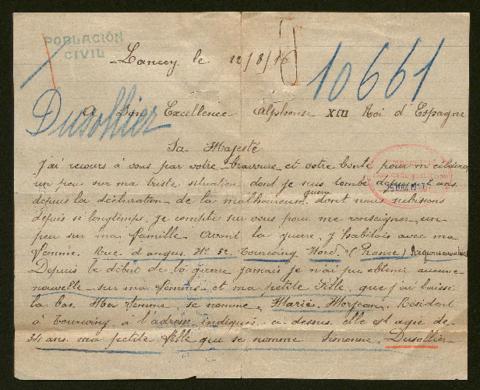 POBLACIÓN
CIVIL
Lancey le 22/8/16
10661
A Son Excellence Alphonse XIII Roi d'Espagne
Dusollier
Sa Majesté
J'ai recours à vous par votre bravoure et votre bonté pour m'éclairer
un peu sur ma triste situation dont je suis tombé
depuis la déclaration de la malheureuse guerre dont nous subissons
depuis si longtemps, je compte sur vous pour me renseigner un
peu sur ma famille avant la guerre, j'habitais avec ma
femme. Rue d'angus, No 52 Tourcoing Nord (France)
Depuis le début de la guerre jamais je n'ai pu obtenir aucune
nouvelle sur ma femme et ma petite fille, que j'ai laissé
la bas. Ma femme se nomme, Maria Merjean. Résidant
à Tourcoing à l'adresse indiquée ci dessus, elle est agée de
34 ans. ma petite fille qui se nomme Simonne. Dusollier